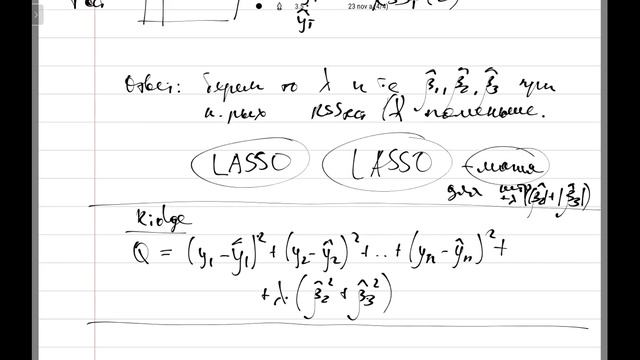 ŷ₁
23 nov a (4/4)
Ответ: берем то λ и те β̂₁, β̂₂, β̂₃ при
к-рых RSS (λ) поменьше.
LASSO LASSO
для штр
+λ(|β̂₂|+|β̂₃|)
Ridge
Q = (y₁ - ŷ₁)² + (y₂ - ŷ₂)² + .. + (yₙ - ŷₙ)² +
+ λ · (β̂₂² + β̂₃²)